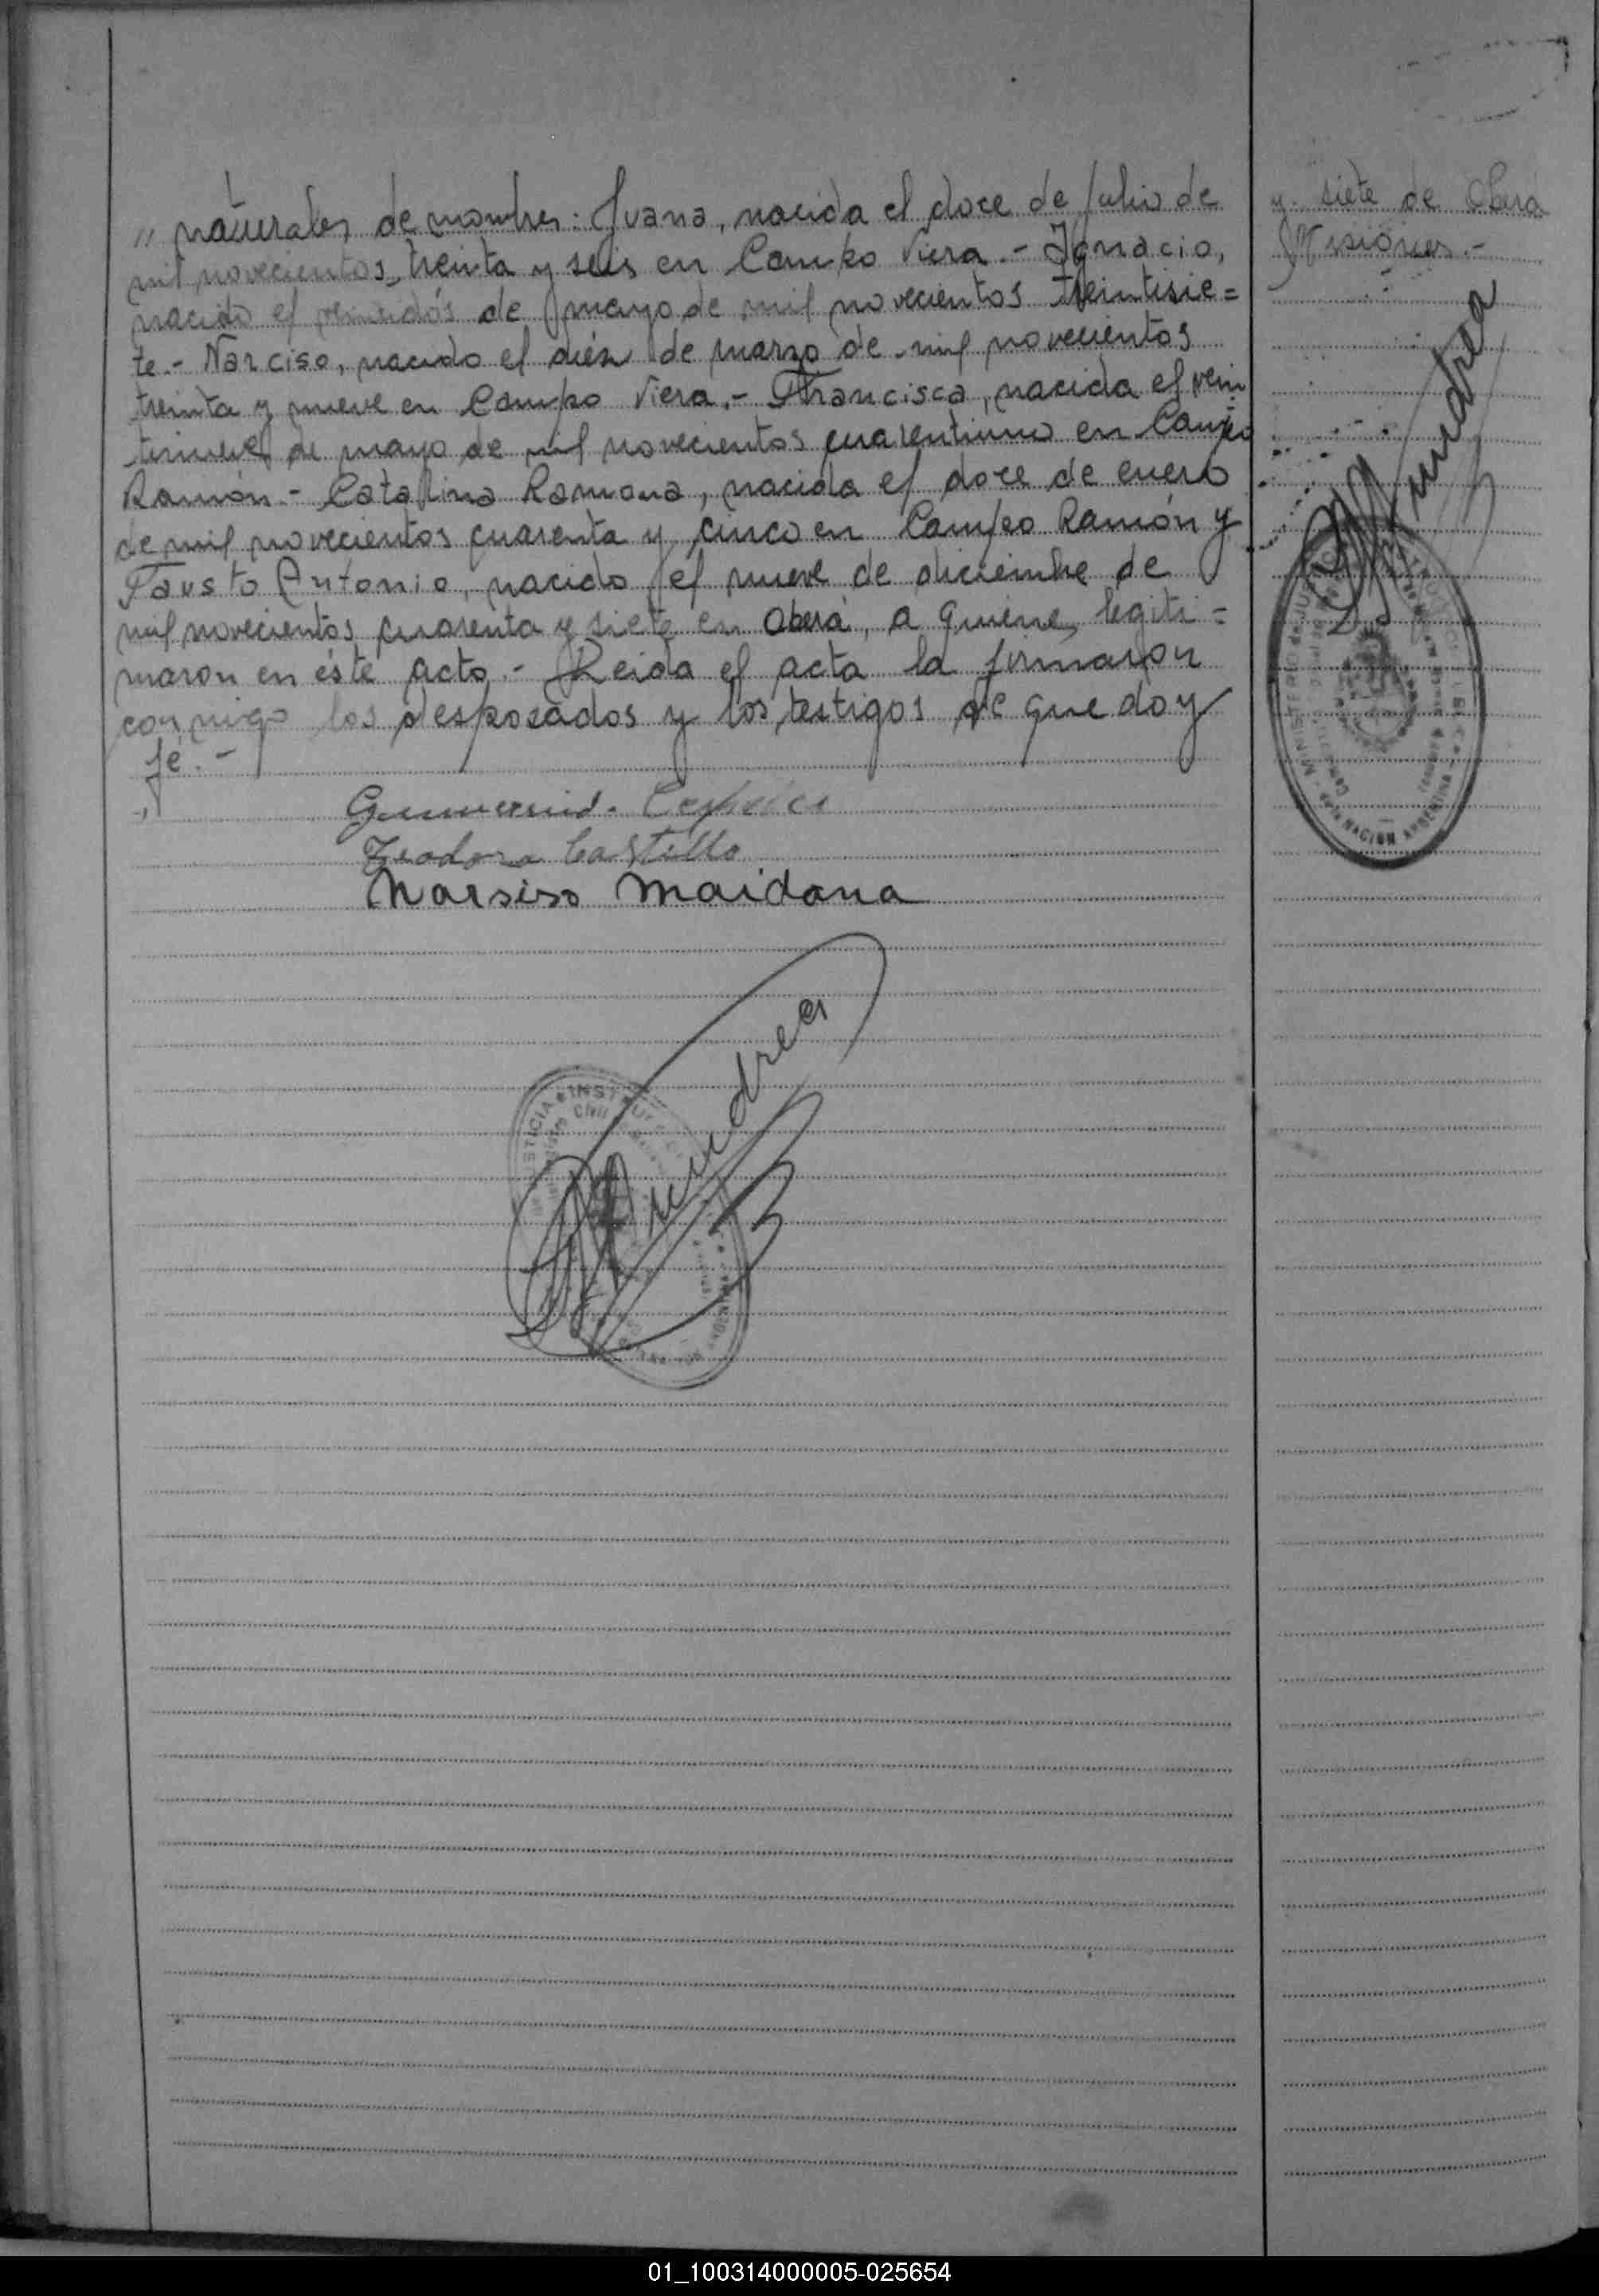 " naturales de nombres: Juana, nacida el doce de julio de
mil novecientos treinta y seis en Campo Viera.- Ignacio,
nacido el veintidós de mayo de mil novecientos treintisie=
te.- Narciso, nacido el diéz de marzo de mil novecientos
treinta y nueve en Campo Viera.- Francisca, nacida el vein
tinueve de mayo de mil novecientos cuarentiuno en Campo
Ramón.- Catalina Ramona, nacida el doce de enero
de mil novecientos cuarenta y cinco en Campo Ramón y
Fausto Antonio, nacido el nueve de diciembre de
mil novecientos cuarenta y siete en Oberá, a quienes legiti=
maron en éste acto.- Leida el acta la firmaron
conmigo los desposados y los testigos de que doy
fé.-
Teodora Castillo
Narsiso Maidana
y siete de Oberá
Misiones.-
MINISTERIO de JUSTICIA
NACION ARGENTINA
01_100314000005-025654